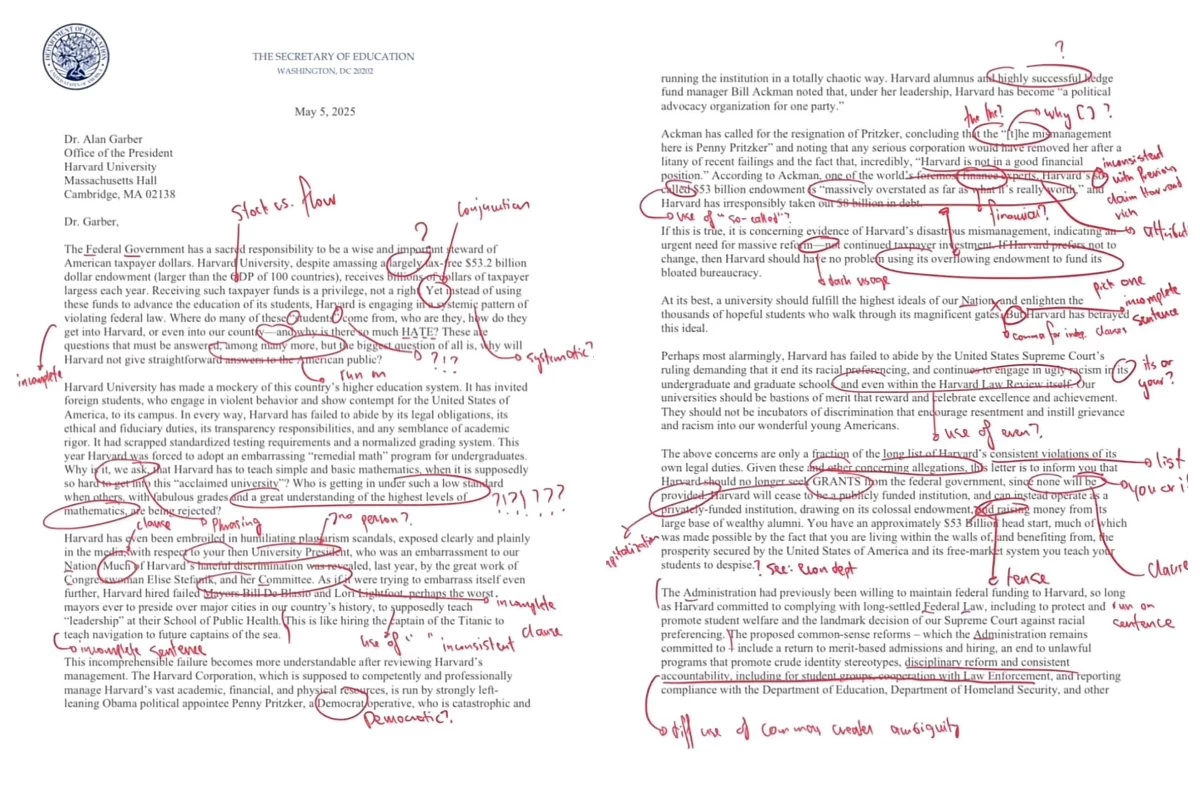 DEPARTMENT OF EDUCATION
UNITED STATES OF AMERICA
THE SECRETARY OF EDUCATION
WASHINGTON, DC 20202
May 5, 2025
Dr. Alan Garber
Office of the President
Harvard University
Massachusetts Hall
Cambridge, MA 02138
Stock vs. flow
Conjunction
Dr. Garber,
?
The Federal Government has a sacred responsibility to be a wise and important steward of
American taxpayer dollars. Harvard University, despite amassing a largely tax-free $53.2 billion
dollar endowment (larger than the GDP of 100 countries), receives billions of dollars of taxpayer
largess each year. Receiving such taxpayer funds is a privilege, not a right. Yet instead of using
these funds to advance the education of its students, Harvard is engaging in a systemic pattern of
violating federal law. Where do many of these students come from, who are they, how do they
get into Harvard, or even into our country—and why is there so much HATE? These are
questions that must be answered, among many more, but the biggest question of all is, why will
Harvard not give straightforward answers to the American public?
?!?
systematic?
incomplete
run on
Harvard University has made a mockery of this country's higher education system. It has invited
foreign students, who engage in violent behavior and show contempt for the United States of
America, to its campus. In every way, Harvard has failed to abide by its legal obligations, its
ethical and fiduciary duties, its transparency responsibilities, and any semblance of academic
rigor. It had scrapped standardized testing requirements and a normalized grading system. This
year Harvard was forced to adopt an embarrassing “remedial math” program for undergraduates.
Why is it, we ask, that Harvard has to teach simple and basic mathematics, when it is supposedly
so hard to get into this “acclaimed university”? Who is getting in under such a low standard
when others, with fabulous grades and a great understanding of the highest levels of
mathematics, are being rejected?
?!?!????
clause
Phrasing
no person?
Harvard has even been embroiled in humiliating plagiarism scandals, exposed clearly and plainly
in the media, with respect to your then University President, who was an embarrassment to our
Nation. Much of Harvard's hateful discrimination was revealed, last year, by the great work of
Congresswoman Elise Stefanik, and her Committee. As if it were trying to embarrass itself even
further, Harvard hired failed Mayors Bill De Blasio and Lori Lightfoot, perhaps the worst
mayors ever to preside over major cities in our country's history, to supposedly teach
“leadership” at their School of Public Health. This is like hiring the captain of the Titanic to
teach navigation to future captains of the sea.
incomplete
clause
use of " "
inconsistent
incomplete sentence
This incomprehensible failure becomes more understandable after reviewing Harvard's
management. The Harvard Corporation, which is supposed to competently and professionally
manage Harvard's vast academic, financial, and physical resources, is run by strongly left-
leaning Obama political appointee Penny Pritzker, a Democrat operative, who is catastrophic and
Democratic?
?
running the institution in a totally chaotic way. Harvard alumnus and highly successful hedge
fund manager Bill Ackman noted that, under her leadership, Harvard has become “a political
advocacy organization for one party.”
the the?
why [ ] ?
Ackman has called for the resignation of Pritzker, concluding that the “[t]he mismanagement
here is Penny Pritzker” and noting that any serious corporation would have removed her after a
litany of recent failings and the fact that, incredibly, “Harvard is not in a good financial
position.” According to Ackman, one of the world's foremost finance experts, Harvard's so-
called $53 billion endowment is “massively overstated as far as what it's really worth,” and
Harvard has irresponsibly taken out $8 billion in debt.
inconsistent
with previous
claim Harvard
rich
use of "so-called"?
financial?
If this is true, it is concerning evidence of Harvard's disastrous mismanagement, indicating an
urgent need for massive reform—not continued taxpayer investment. If Harvard prefers not to
change, then Harvard should have no problem using its overflowing endowment to fund its
bloated bureaucracy.
dash usage
pick one
At its best, a university should fulfill the highest ideals of our Nation, and enlighten the
thousands of hopeful students who walk through its magnificent gates. But Harvard has betrayed
this ideal.
incomplete
sentence
comma for indep. clauses
Perhaps most alarmingly, Harvard has failed to abide by the United States Supreme Court's
ruling demanding that it end its racial preferencing, and continues to engage in ugly racism in its
undergraduate and graduate schools and even within the Harvard Law Review itself. Our
universities should be bastions of merit that reward and celebrate excellence and achievement.
They should not be incubators of discrimination that encourage resentment and instill grievance
and racism into our wonderful young Americans.
its or
your?
use of even?
The above concerns are only a fraction of the long list of Harvard's consistent violations of its
own legal duties. Given these and other concerning allegations, this letter is to inform you that
Harvard should no longer seek GRANTS from the federal government, since none will be
provided. Harvard will cease to be a publicly funded institution, and can instead operate as a
privately-funded institution, drawing on its colossal endowment, and raising money from its
large base of wealthy alumni. You have an approximately $53 Billion head start, much of which
was made possible by the fact that you are living within the walls of, and benefiting from, the
prosperity secured by the United States of America and its free-market system you teach your
students to despise.
list
? See: Econ dept
tense
clause
The Administration had previously been willing to maintain federal funding to Harvard, so long
as Harvard committed to complying with long-settled Federal Law, including to protect and
promote student welfare and the landmark decision of our Supreme Court against racial
preferencing. The proposed common-sense reforms – which the Administration remains
committed to – include a return to merit-based admissions and hiring, an end to unlawful
programs that promote crude identity stereotypes, disciplinary reform and consistent
accountability, including for student groups, cooperation with Law Enforcement, and reporting
compliance with the Department of Education, Department of Homeland Security, and other
run on
sentence
diff use of commas creates ambiguity